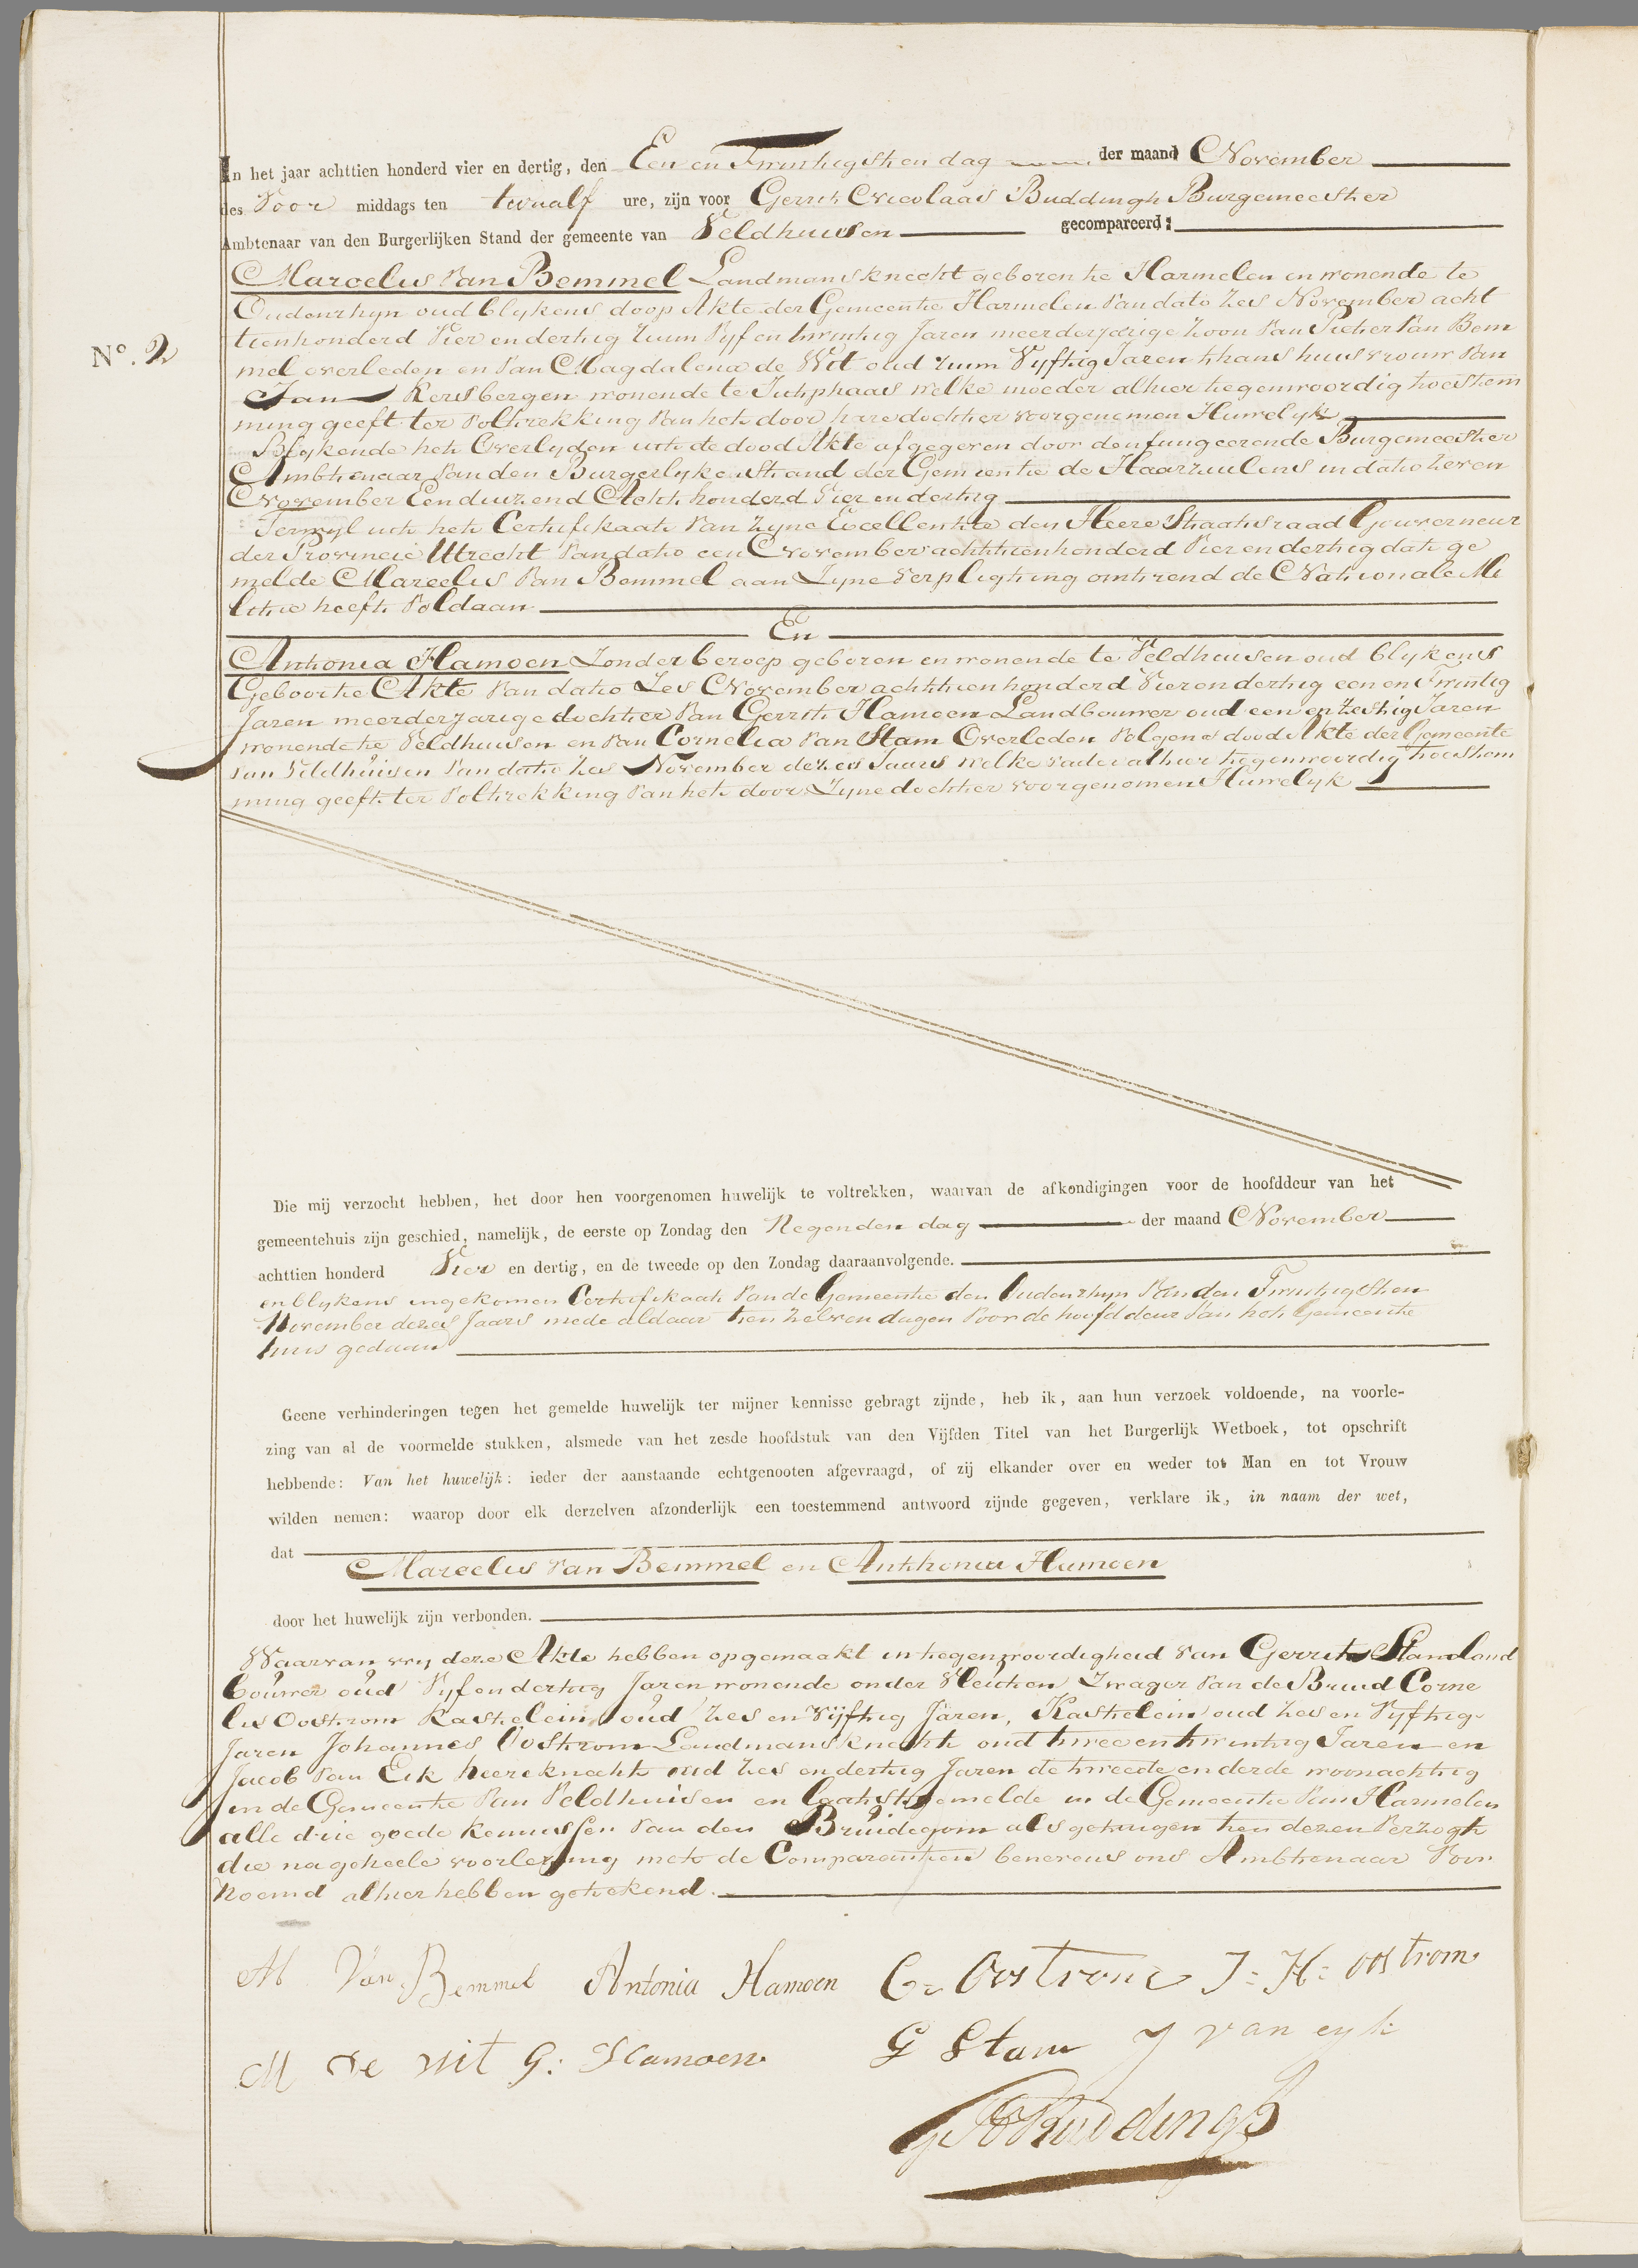 In het jaar achttien honderd vier en dertig, den Een en Twintigsten dag der maand November
des Voor middags ten twaalf ure, zijn voor Gerrit Nicolaas Buddingh Burgemeester
Ambtenaar van den Burgerlijken Stand der gemeente van Veldhuisen gecompareerd:
Marcelis van Bemmel Landmansknecht geboren te Harmelen en wonende te
Oudenrhyn oud blykens doop Akte der Gemeente Harmelen van dato zes November acht
tienhonderd Vier en dertig ruim Vyf en twintig Jaren meerderjarige zoon van Pieter Van Bem
mel overleden en van Magdalena de Wit oud ruim Vyftig Jaren thans huisvrouw van
N°. 2
Jan Rensbergen wonende te Jutphaas welke moeder alhier tegenwoordig toestem
ming geeft ter voltrekking van het door hare dochter voorgenomen Huwelyk
Blykende het Overlyden uit de dood Akte afgegeven door den fungeerende Burgemeester
Ambtenaar van den Burgerlyken Stand der Gemeente de Haarzuilens in dato zeven
November Eenduizend Acht honderd Vier en dertig
Terwyl uit het Certifikaat van zyne Excellentie den Heere Staatsraad Gouverneur
der Provincie Utrecht van dato een November achttienhonderd Vier en dertig dat ge
melde Marcelis van Bemmel aan Zyne verpligting omtrend de Nationale Mi
litie heeft voldaan
En
Antonia Hamoen Zonder beroep geboren en wonende te Veldhuisen oud blykens
Geboorte Akte van dato Zes November achttienhonderd Vier en dertig een en Twintig
Jaren meerderjarige dochter van Gerrit Hamoen Landbouwer oud een en zestig Jaren
wonende te Veldhuisen en van Cornelia van Stam Overleden volgens dood Akte der Gemeente
van Veldhuisen van dato zes November dezes Jaars welke vader alhier tegenwoordig toestem
ming geeft ter voltrekking van het door Zyne dochter voorgenomen Huwelyk
Die mij verzocht hebben, het door hen voorgenomen huwelijk te voltrekken, waarvan de afkondigingen voor de hoofddeur van het
gemeentehuis zijn geschied, namelijk, de eerste op Zondag den Negenden dag der maand November
achttien honderd Vier en dertig, en de tweede op den Zondag daaraanvolgende.
en blykens ingekomen Certifikaat van de Gemeente den Oudenrhyn van den Twintigsten
November dezes Jaars mede aldaar ten zelven dagen voor de hoofddeur van het Gemeente
huis gedaan
Geene verhinderingen tegen het gemelde huwelijk ter mijner kennisse gebragt zijnde, heb ik, aan hun verzoek voldoende, na voorle-
zing van al de voormelde stukken, alsmede van het zesde hoofdstuk van den Vijfden Titel van het Burgerlijk Wetboek, tot opschrift
hebbende: Van het huwelijk: ieder der aanstaande echtgenooten afgevraagd, of zij elkander over en weder tot Man en tot Vrouw
wilden nemen: waarop door elk derzelven afzonderlijk een toestemmend antwoord zijnde gegeven, verklare ik, in naam der wet,
dat
Marcelis van Bemmel en Anthonia Hamoen
door het huwelijk zijn verbonden.
Waarvan wy deze Akte hebben opgemaakt in tegenwoordigheid van Gerrit Stam Land
bouwer oud Vyf en dertig Jaren wonende onder Vleuten Zwager van de Bruid Corne
lis Oostrom Kastelein oud zes en vijftig Jaren, Kastelein oud zes en Vyftig
Jaren Johannes Oostrom Landmansknecht oud twee en twintig Jaren en
Jacob van Eik heereknecht oud zes en dertig Jaren de tweede en derde woonachtig
in de Gemeente van Veldhuisen en laatstgemelde in de Gemeente van Harmelen
alle drie goede kennissen van den Bruidegom als getuigen ten dezen Verzogt
die na geheele voorlezing met de Comparanten benevens ons Ambtenaar voor
noemd alhier hebben getekend.
M Van Bemmel Antonia Hamoen C= Oostrom J= H= oostrom
M de wit G: Hamoen G Stam J van eyk
G N Buddingh